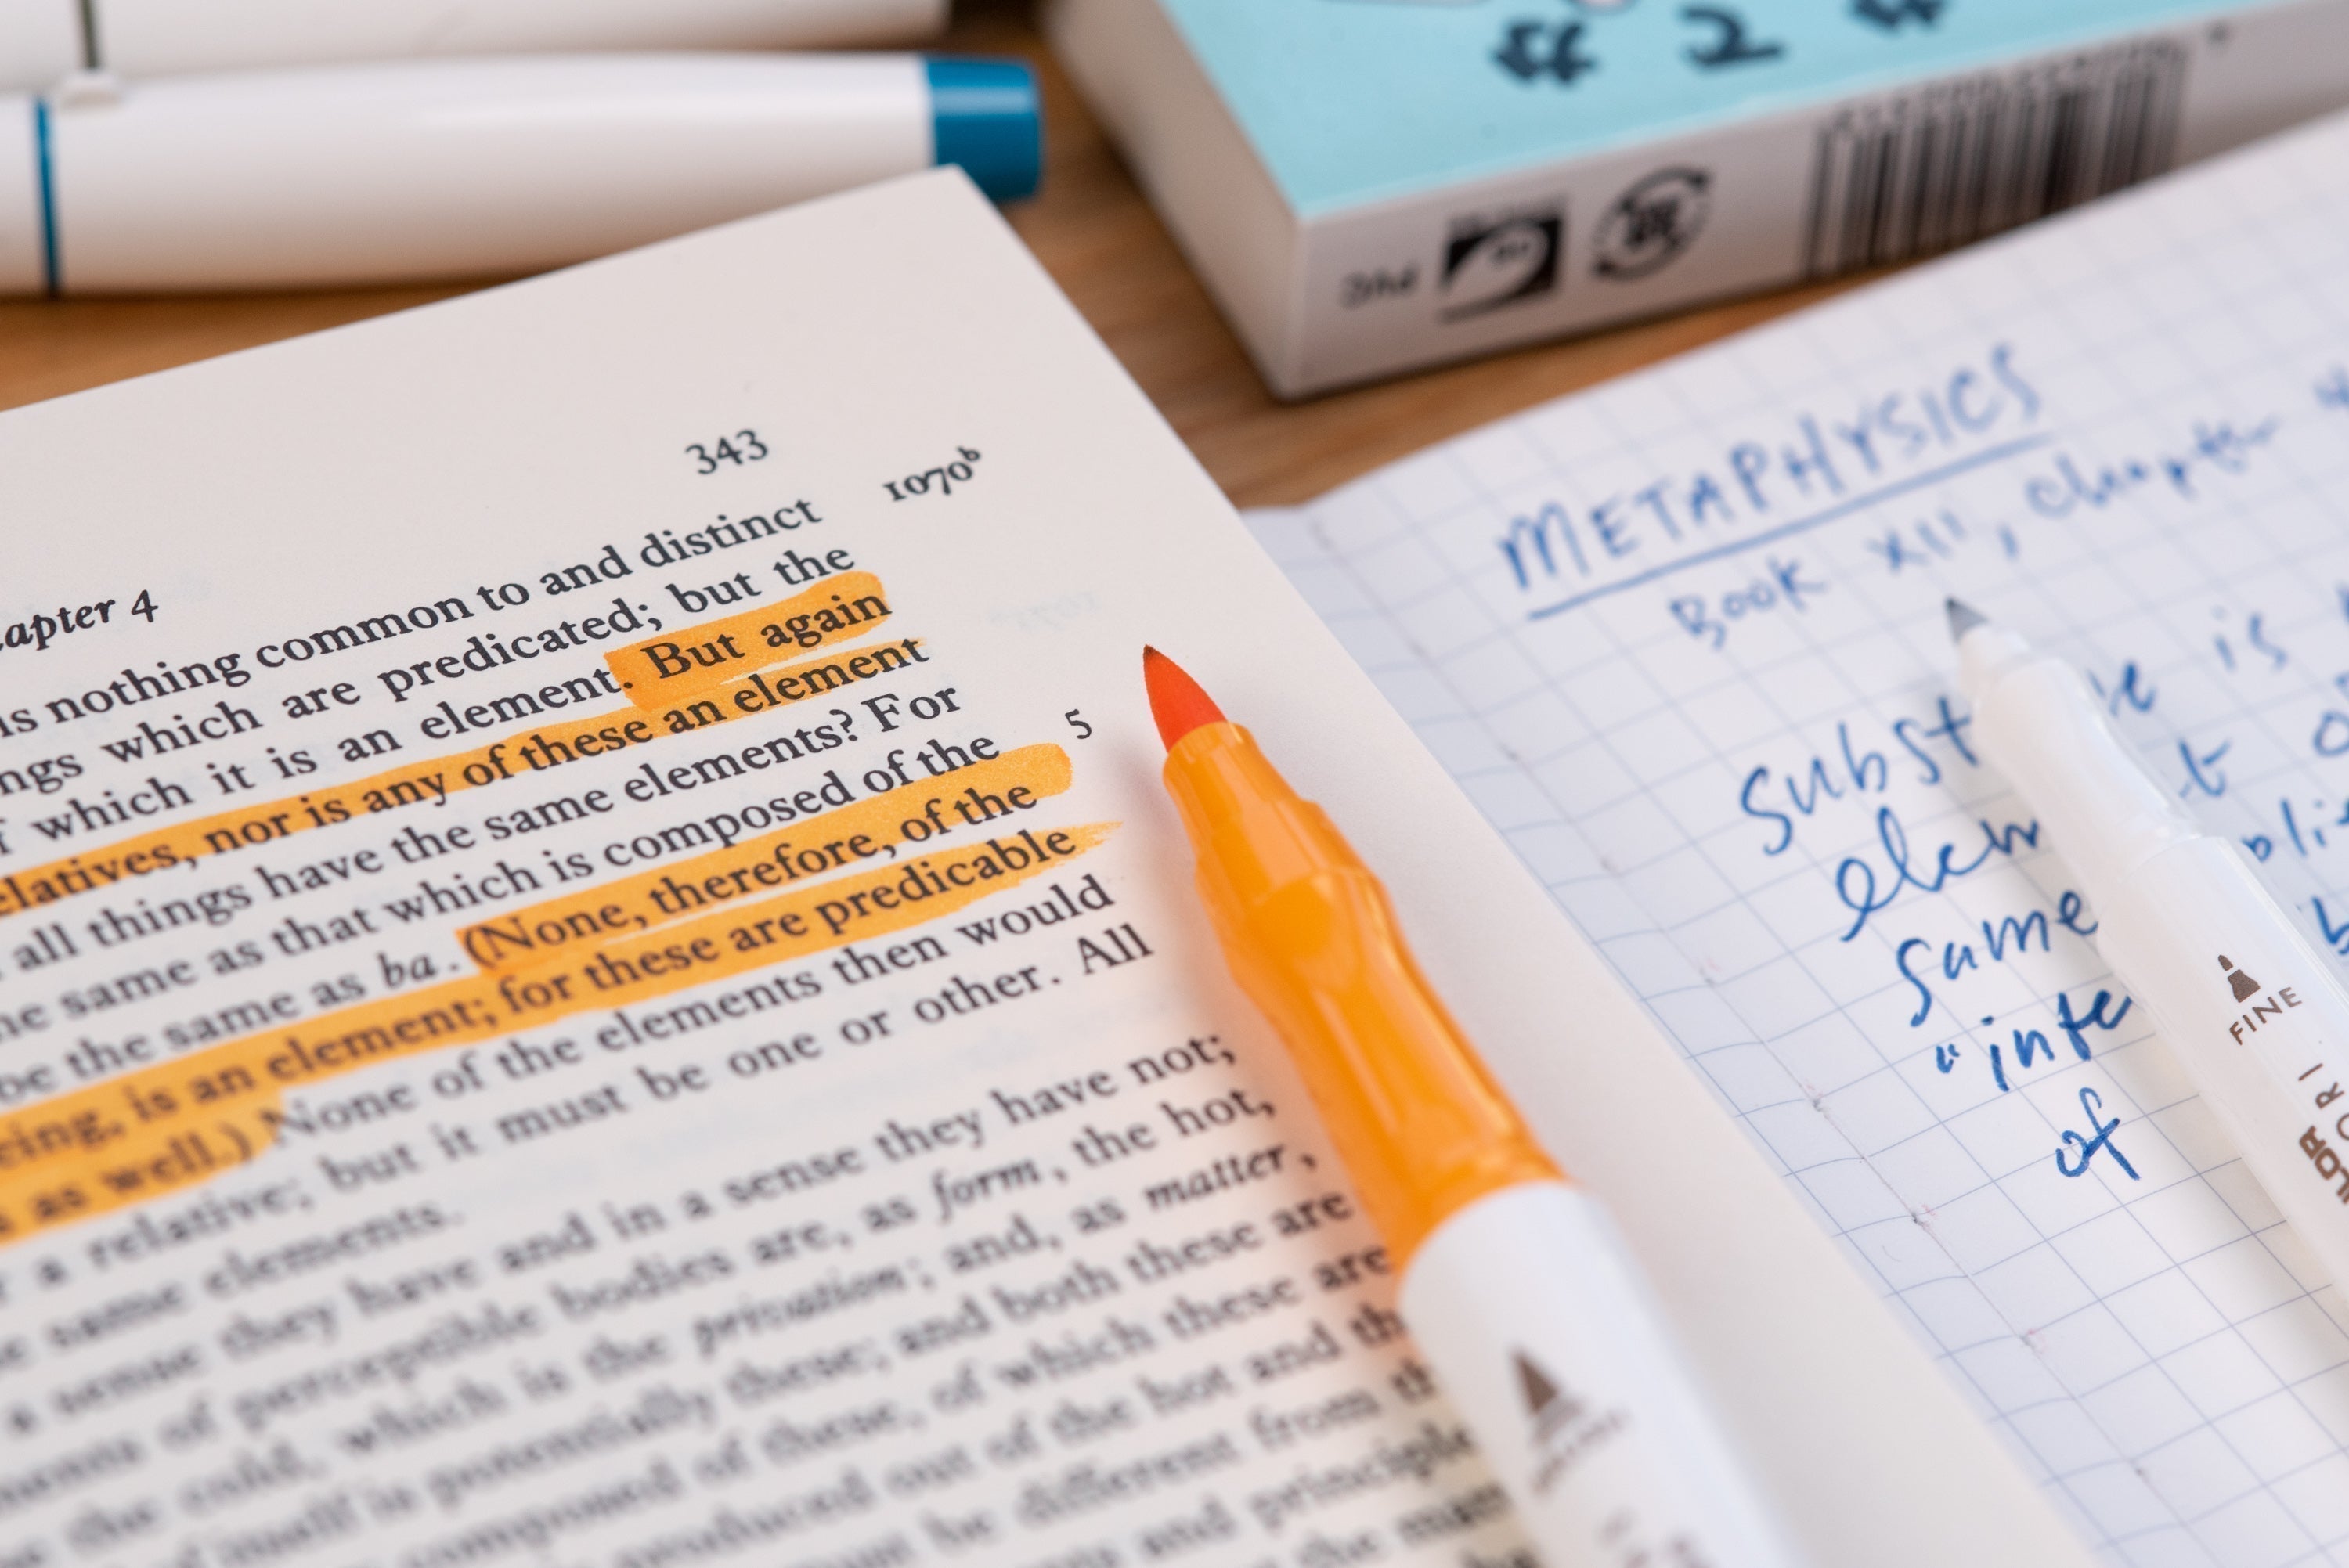 343
apter 4
1070ᵇ
is nothing common to and distinct
ngs which are predicated; but the
f which it is an element. But again
elatives, nor is any of these an element
all things have the same elements? For
5
he same as that which is composed of the
be the same as ba. (None, therefore, of the
eing, is an element; for these are predicable
as well.) None of the elements then would
r a relative; but it must be one or other. All
e same elements.
a sense they have and in a sense they have not;
ments of perceptible bodies are, as form, the hot,
the cold, which is the privation; and, as matter,
of itself is potentially these; and both these are
composed of these, of which these are
produced out of the hot and th
must be different from th
and principle
PVC
METAPHYSICS
Book XII, chapter 4
Subst e is
elem t
same
"inte
of
FINE